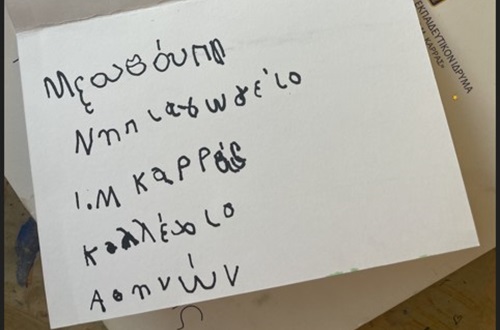 Νηπιαγωγείο
Ι.Μ ΚαρρΑς
Κολλέγιο
Αθηνών
ΕΚΠΑΙΔΕΥΤΙΚΟΝ ΙΔΡΥΜΑ
ΚΑΡΡΑΣ"